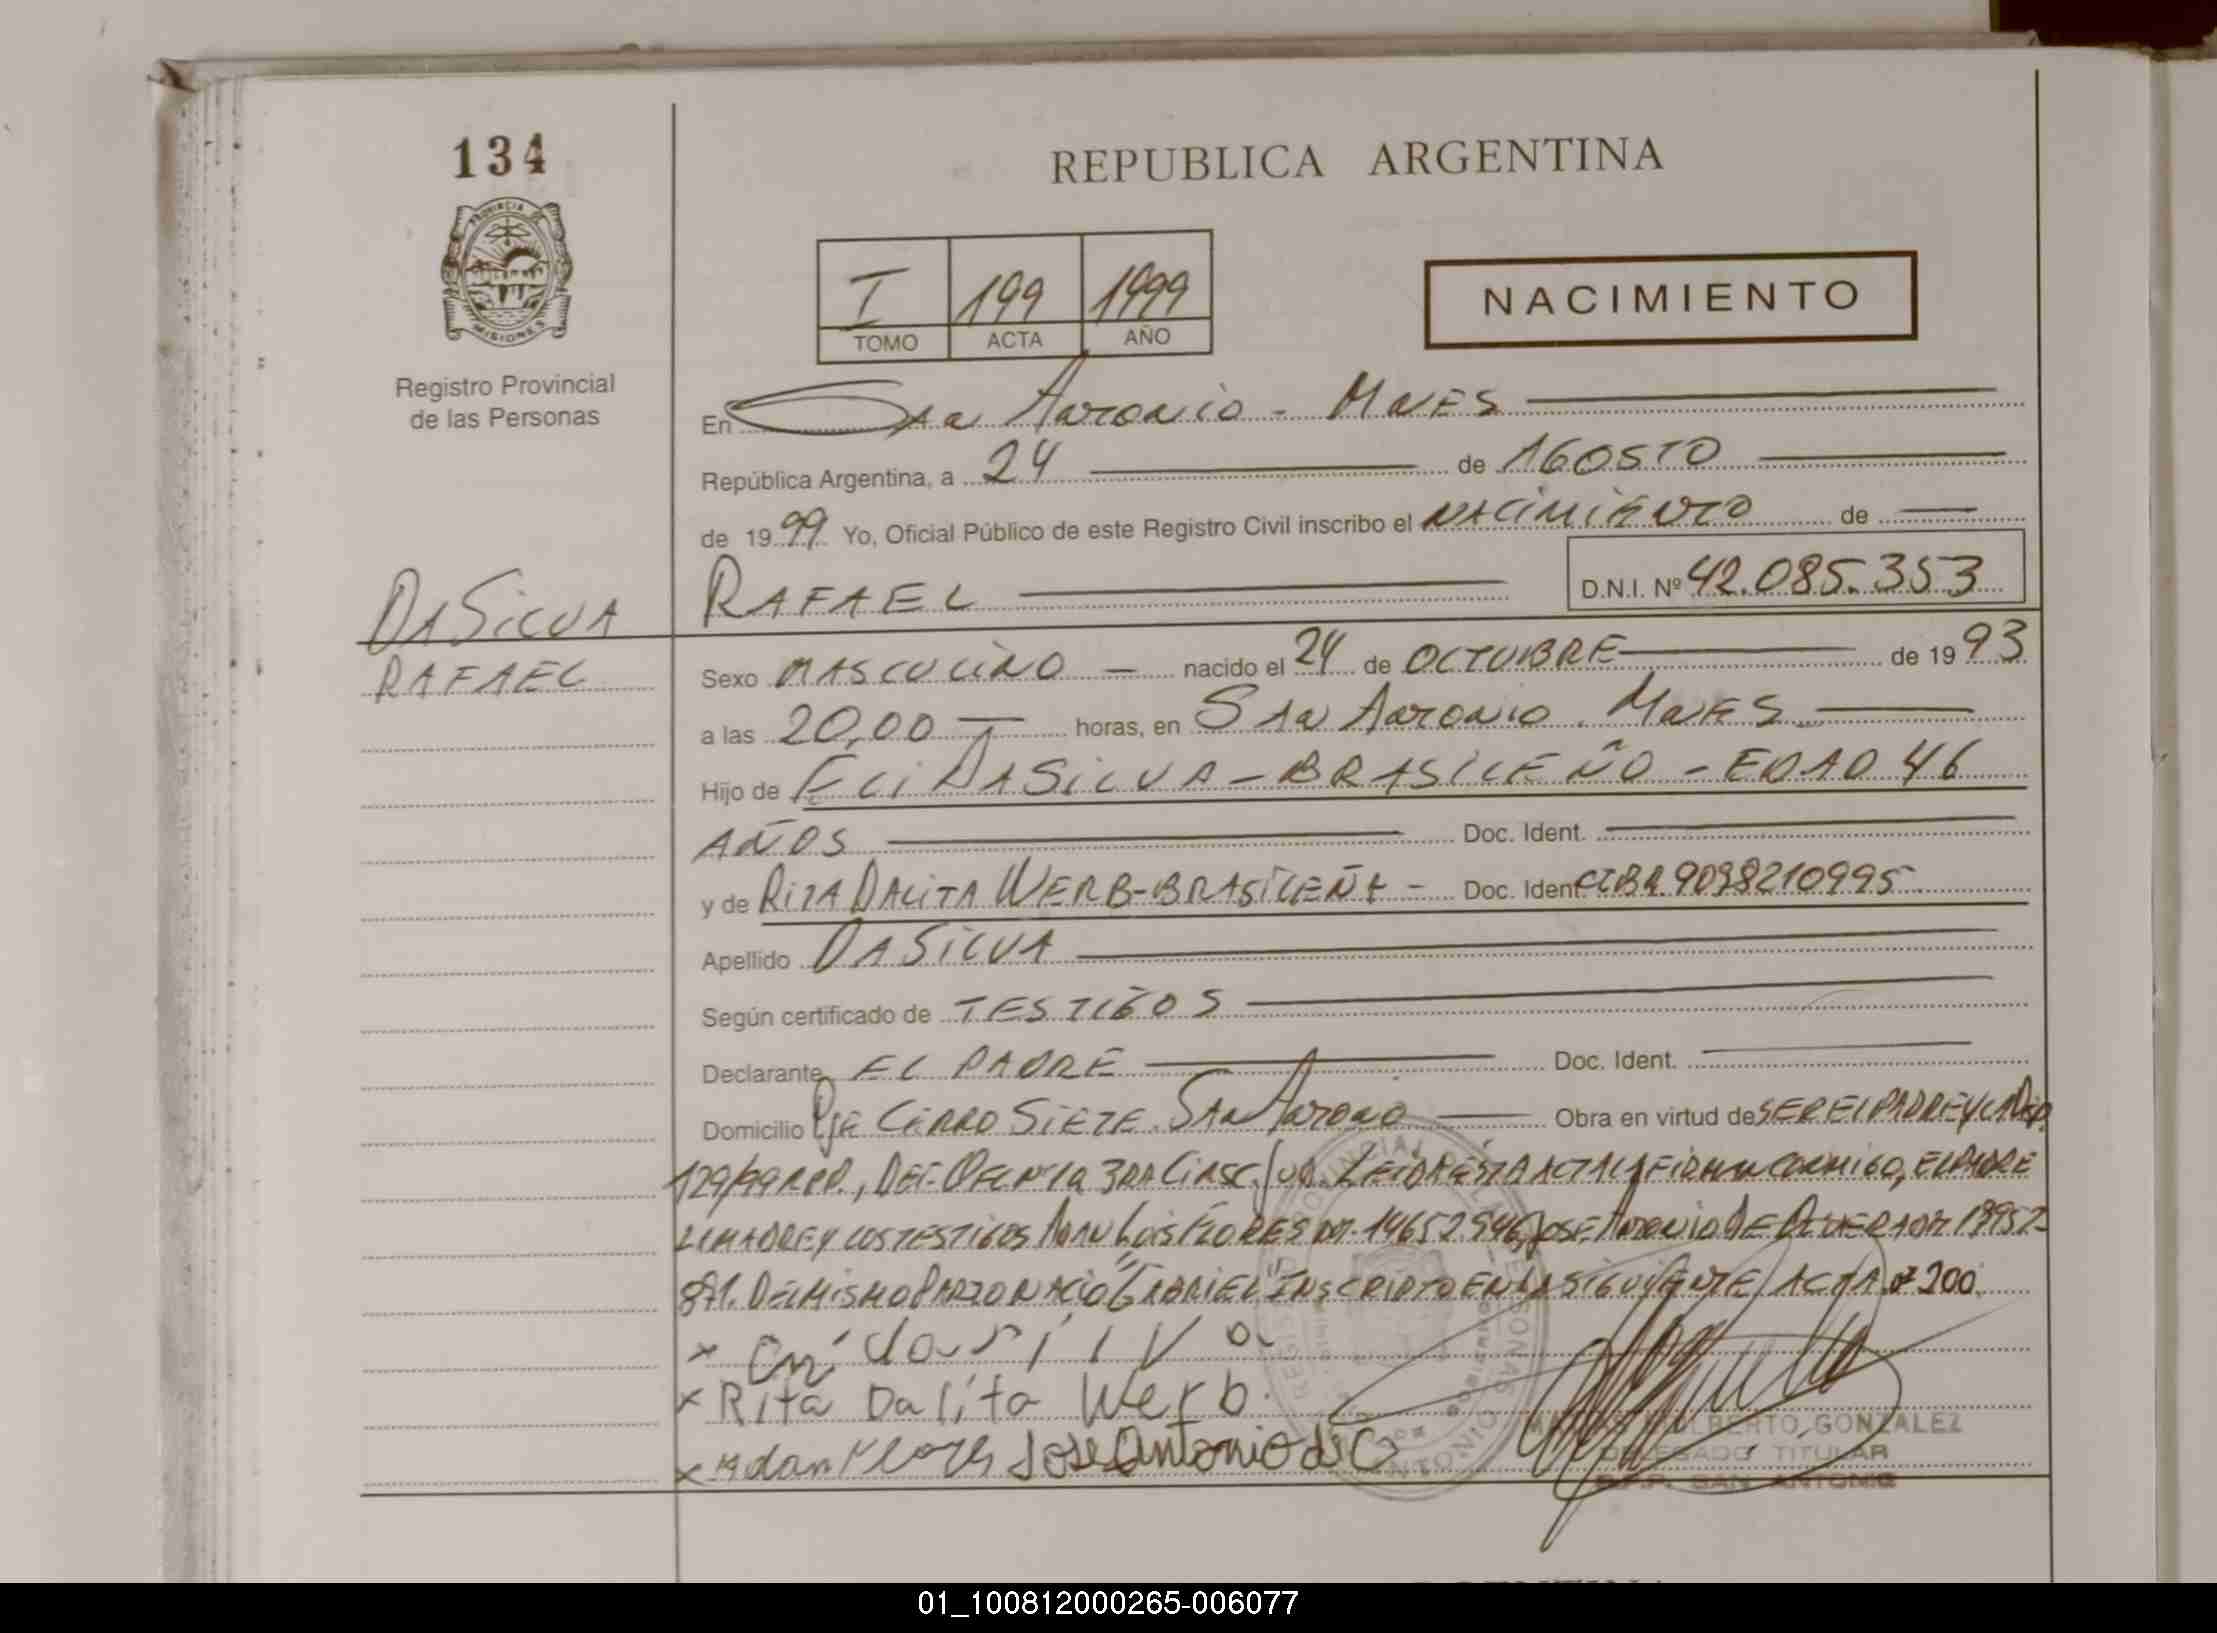 134
REPUBLICA ARGENTINA
PROVINCIA DE
MISIONES
Registro Provincial
de las Personas
I 199 1999
TOMO ACTA AÑO
NACIMIENTO
En San Antonio - MnES
República Argentina, a 24 de AGOSTO
de 1999 Yo, Oficial Público de este Registro Civil inscribo el NACIMIENTO de
RAFAEL D.N.I. Nº 42.085.353
DA SILVA
RAFAEL
Sexo MASCULINO nacido el 24 de OCTUBRE de 1993
a las 20,00 horas, en SAn Antonio. MnES
Hijo de ELI DA SILVA - BRASILEÑO - EDAD 46
AÑOS Doc. Ident.
y de RITA DALITA WERB - BRASILEÑA - Doc. Ident. CIBR 9098210995
Apellido DA SILVA
Según certificado de TESTIGOS
Declarante EL PADRE Doc. Ident.
Domicilio PJE CERRO SIETE. SAN Antonio Obra en virtud de SER EL PADRE Y LA Disp.
129/99 R.P.P., DEF. OFC Nº 1 a 3RA CiRSC. JUD. LEIDA ESTA ACTA LA FIRMAN CONMIGO, EL PADRE
LA MADRE Y LOS TESTIGOS ADAN LUIS FLORES DM. 14652.546, JOSE ANTONIO DE OLIVERA DM
871. DEL MISMO PARTO NACIO "GABRIEL" INSCRIPTO EN LA SIGUIENTE ACTA # 200
x Eli da silva
x Rita Dalita Werb.
x Adan Flores Jose Antonio de O
GONZALEZ
DELEGADO TITULAR
R.P.P. SAN ANTONIO
01_100812000265-006077